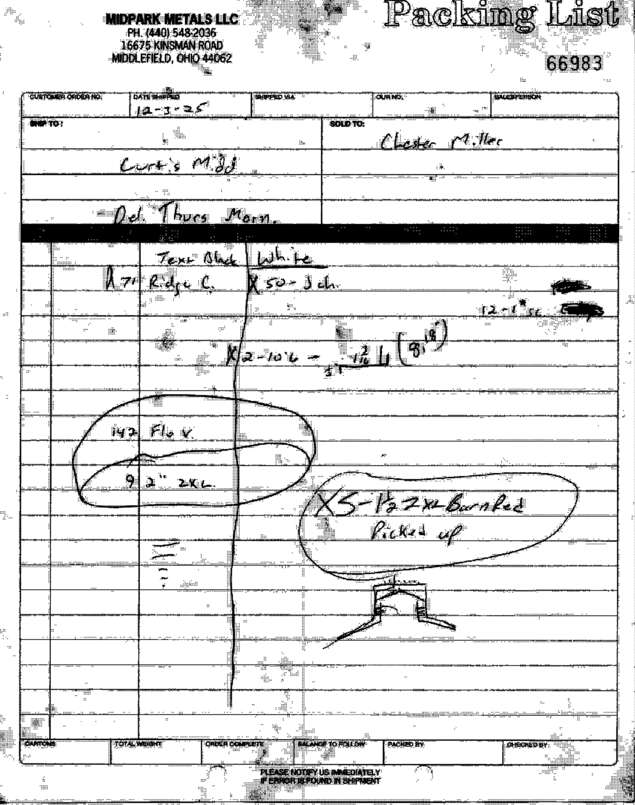 Packing List
MIDPARK METALS LLC
PH. (440) 548-2036
16675 KINSMAN ROAD
MIDDLEFIELD, OHIO 44062
66983
CUSTOMER ORDER NO. DATE SHIPPED SHIPPED VIA OUR NO. SALESPERSON
12-3-25
SHIP TO: SOLD TO:
Chester Miller
Curtis Midd
Del. Thurs Morn.
Text Black White
X 71 Ridge C. X 50- J ch.
12-1" sc
X 2-10'6 -
142 Flo V.
9 2" 2XL
X5-1½ 2XL Barn Red
Picked up
CARTONS TOTAL WEIGHT ORDER COMPLETE BALANCE TO FOLLOW PACKED BY CHECKED BY
PLEASE NOTIFY US IMMEDIATELY
IF ERROR IS FOUND IN SHIPMENT